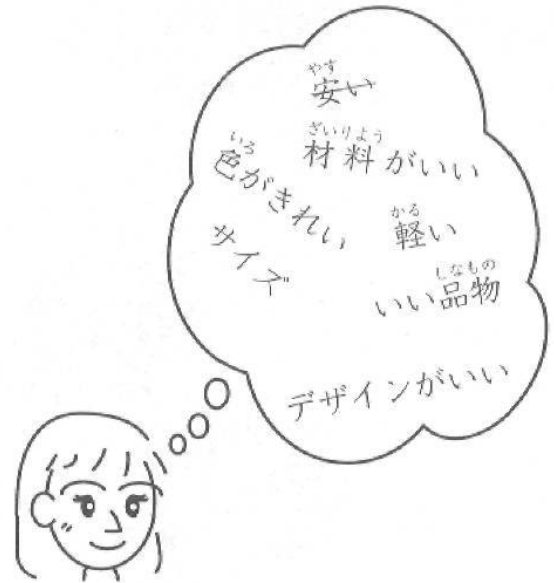 やす
安い
ざいりょう
材料がいい
いろ
色がきれい
かる
軽い
サイズ
しなもの
いい品物
デザインがいい